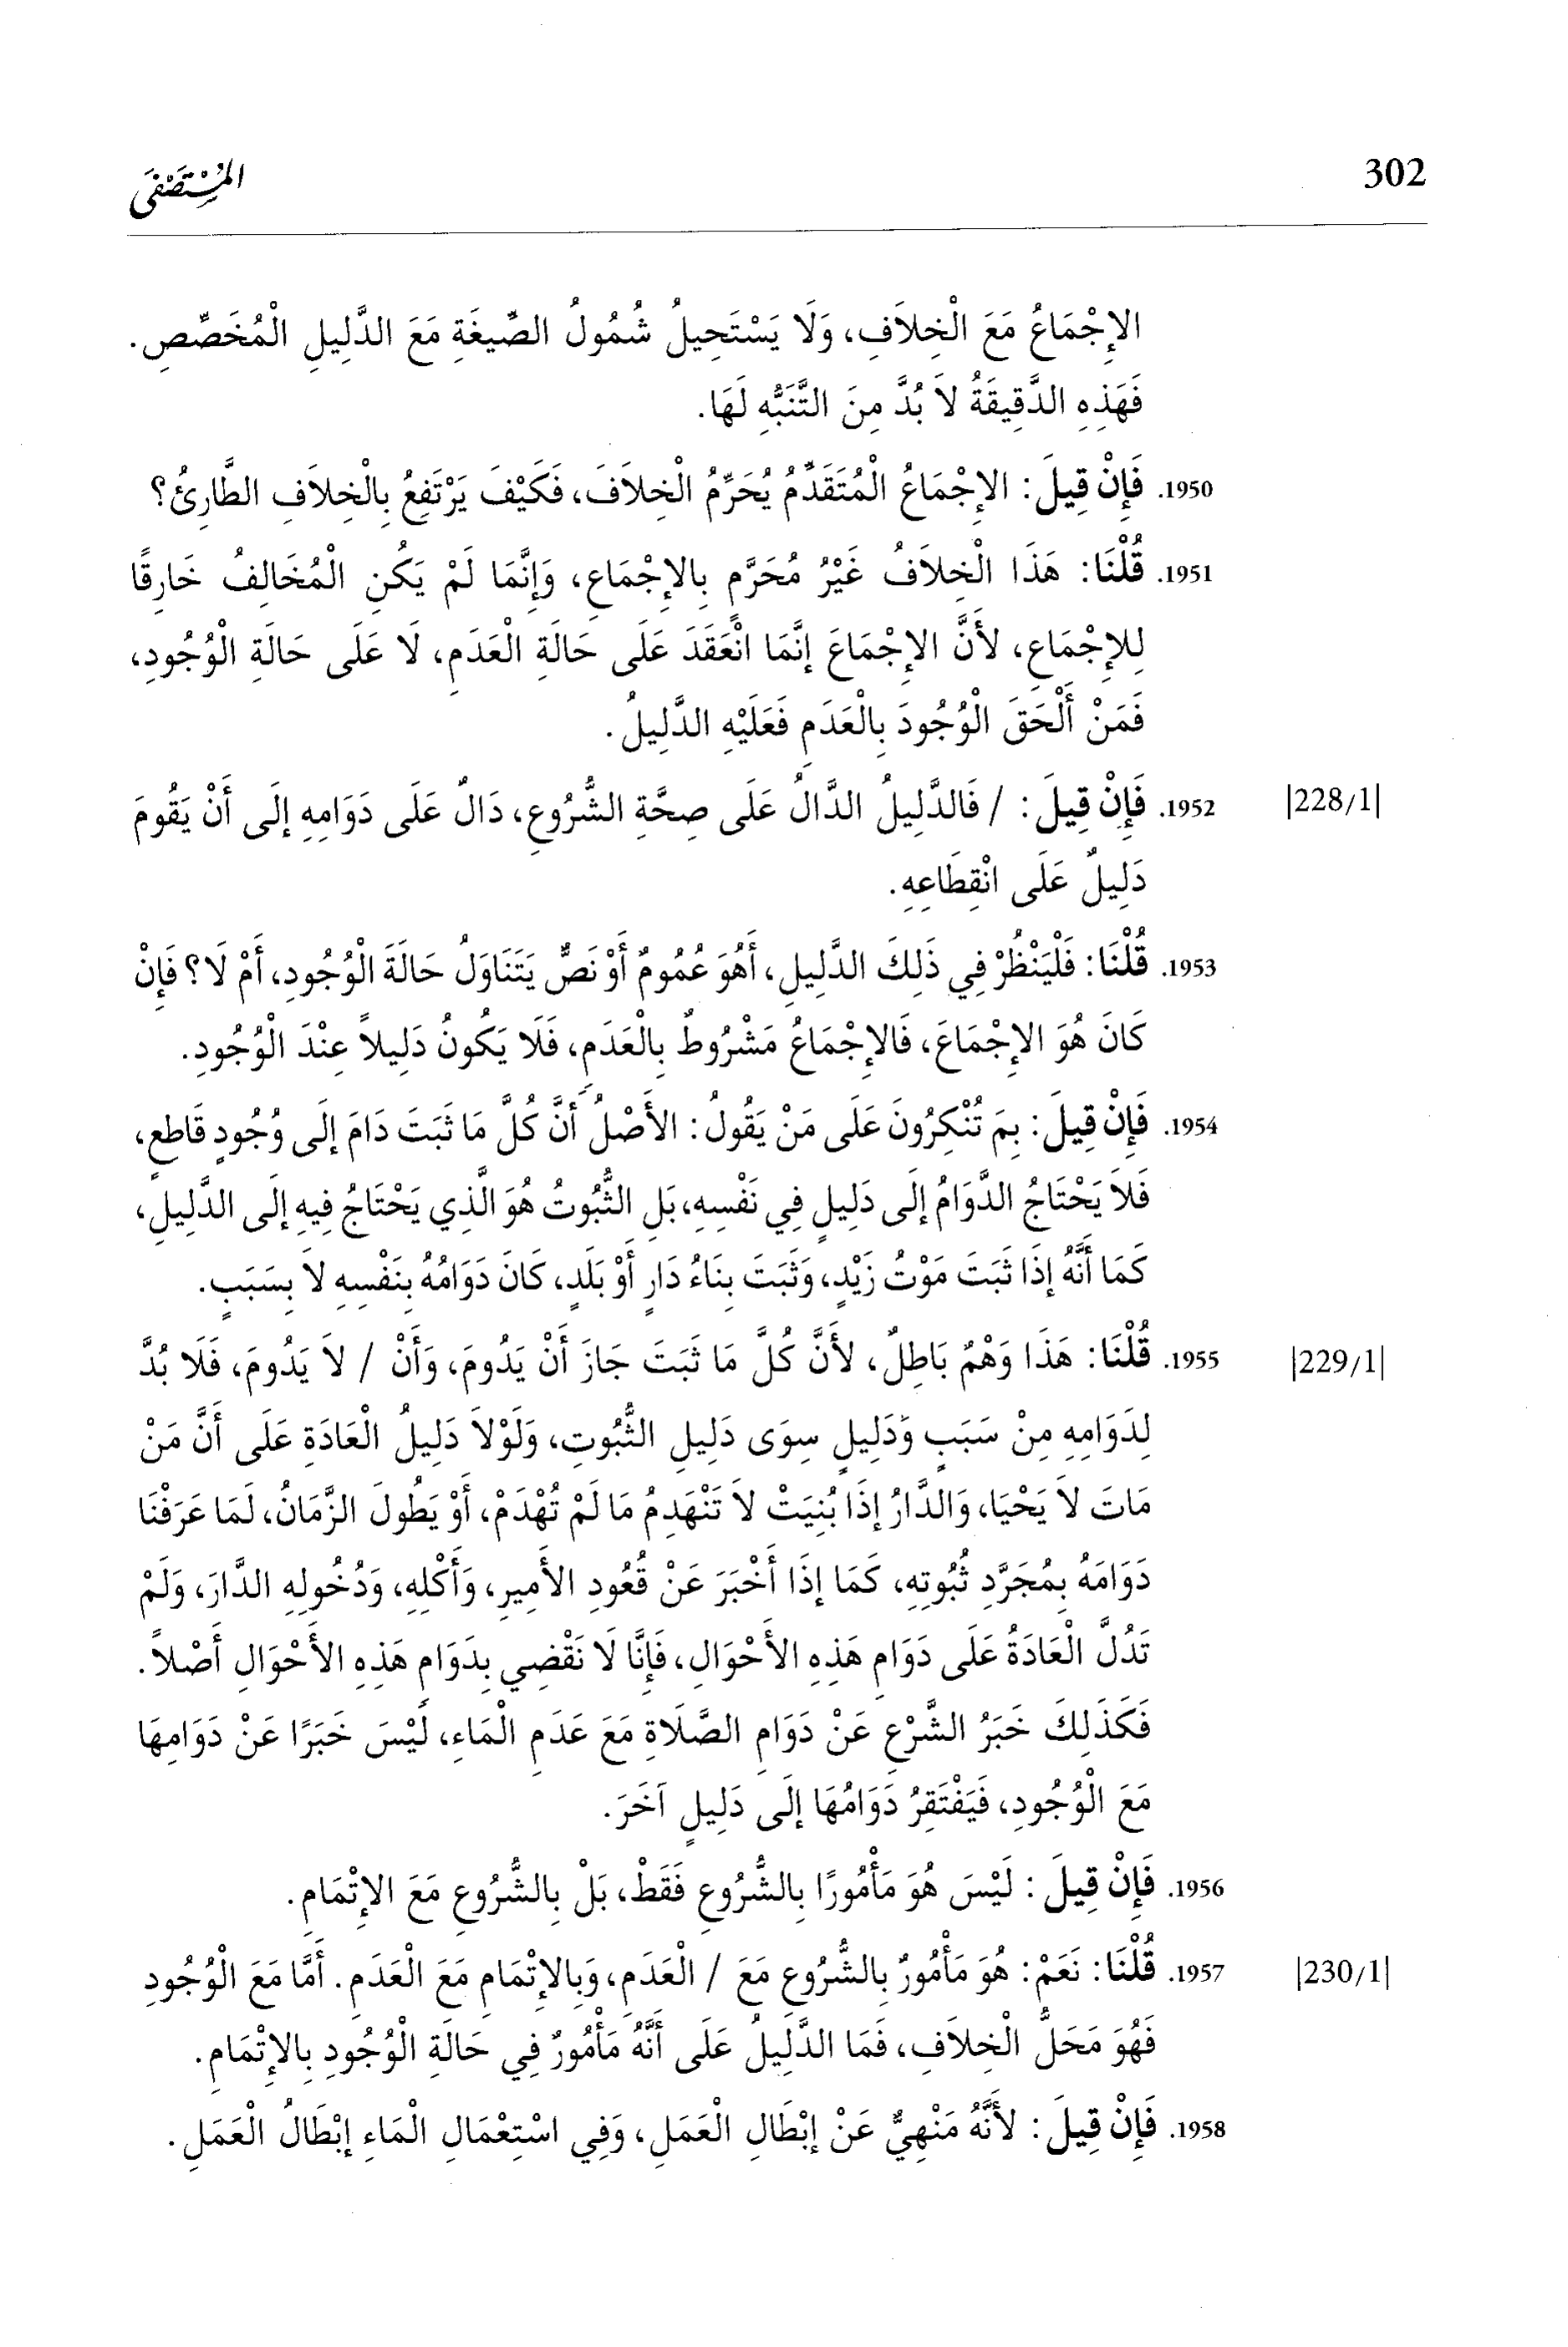 302
المُسْتَصْفَى
الإِجْمَاعُ مَعَ الْخِلاَفِ، وَلَا يَسْتَحِيلُ شُمُولُ الصِّيغَةِ مَعَ الدَّلِيلِ الْمُخَصِّصِ.
فَهَذِهِ الدَّقِيقَةُ لاَ بُدَّ مِنَ التَّنَبُّهِ لَهَا.
1950. فَإِنْ قِيلَ: الإِجْمَاعُ الْمُتَقَدِّمُ يُحَرِّمُ الْخِلاَفَ، فَكَيْفَ يَرْتَفِعُ بِالْخِلاَفِ الطَّارِئُ؟
1951. قُلْنَا: هَذَا الْخِلاَفُ غَيْرُ مُحَرَّمٍ بِالإِجْمَاعِ، وَإِنَّمَا لَمْ يَكُنِ الْمُخَالِفُ خَارِقًا
لِلإِجْمَاعِ، لأَنَّ الإِجْمَاعَ إِنَّمَا انْعَقَدَ عَلَى حَالَةِ الْعَدَمِ، لَا عَلَى حَالَةِ الْوُجُودِ،
فَمَنْ أَلْحَقَ الْوُجُودَ بِالْعَدَمِ فَعَلَيْهِ الدَّلِيلُ.
|228/1| 1952. فَإِنْ قِيلَ: / فَالدَّلِيلُ الدَّالُ عَلَى صِحَّةِ الشُّرُوعِ، دَالٌ عَلَى دَوَامِهِ إِلَى أَنْ يَقُومَ
دَلِيلٌ عَلَى انْقِطَاعِهِ.
1953. قُلْنَا: فَلْيَنْظُرْ فِي ذَلِكَ الدَّلِيلِ، أَهُوَ عُمُومٌ أَوْ نَصٌّ يَتَنَاوَلُ حَالَةَ الْوُجُودِ، أَمْ لَا؟ فَإِنْ
كَانَ هُوَ الإِجْمَاعَ، فَالإِجْمَاعُ مَشْرُوطٌ بِالْعَدَمِ، فَلَا يَكُونُ دَلِيلاً عِنْدَ الْوُجُودِ.
1954. فَإِنْ قِيلَ: بِمَ تُنْكِرُونَ عَلَى مَنْ يَقُولُ: الأَصْلُ أَنَّ كُلَّ مَا ثَبَتَ دَامَ إِلَى وُجُودِ قَاطِعٍ،
فَلاَ يَحْتَاجُ الدَّوَامُ إِلَى دَلِيلٍ فِي نَفْسِهِ، بَلِ الثُّبُوتُ هُوَ الَّذِي يَحْتَاجُ فِيهِ إِلَى الدَّلِيلِ،
كَمَا أَنَّهُ إِذَا ثَبَتَ مَوْتُ زَيْدٍ، وَثَبَتَ بِنَاءُ دَارٍ أَوْ بَلَدٍ، كَانَ دَوَامُهُ بِنَفْسِهِ لاَ بِسَبَبٍ.
|229/1| 1955. قُلْنَا: هَذَا وَهْمٌ بَاطِلٌ، لأَنَّ كُلَّ مَا ثَبَتَ جَازَ أَنْ يَدُومَ، وَأَنْ / لاَ يَدُومَ، فَلَا بُدَّ
لِدَوَامِهِ مِنْ سَبَبٍ وَدَلِيلٍ سِوَى دَلِيلِ الثُّبُوتِ، وَلَوْلاَ دَلِيلُ الْعَادَةِ عَلَى أَنَّ مَنْ
مَاتَ لاَ يَحْيَا، وَالدَّارُ إِذَا بُنِيَتْ لاَ تَنْهَدِمُ مَا لَمْ تُهْدَمْ، أَوْ يَطُولَ الزَّمَانُ، لَمَا عَرَفْنَا
دَوَامَهُ بِمُجَرَّدِ ثُبُوتِهِ، كَمَا إِذَا أَخْبَرَ عَنْ قُعُودِ الأَمِيرِ، وَأَكْلِهِ، وَدُخُولِهِ الدَّارَ، وَلَمْ
تَدُلَّ الْعَادَةُ عَلَى دَوَامِ هَذِهِ الأَحْوَالِ، فَإِنَّا لَا نَقْضِي بِدَوَامِ هَذِهِ الأَحْوَالِ أَصْلاً.
فَكَذَلِكَ خَبَرُ الشَّرْعِ عَنْ دَوَامِ الصَّلَاةِ مَعَ عَدَمِ الْمَاءِ، لَيْسَ خَبَرًا عَنْ دَوَامِهَا
مَعَ الْوُجُودِ، فَيَفْتَقِرُ دَوَامُهَا إِلَى دَلِيلٍ آخَرَ.
1956. فَإِنْ قِيلَ: لَيْسَ هُوَ مَأْمُورًا بِالشُّرُوعِ فَقَطْ، بَلْ بِالشُّرُوعِ مَعَ الإِتْمَامِ.
|230/1| 1957. قُلْنَا: نَعَمْ: هُوَ مَأْمُورٌ بِالشُّرُوعِ مَعَ / الْعَدَمِ، وَبِالإِتْمَامِ مَعَ الْعَدَمِ. أَمَّا مَعَ الْوُجُودِ
فَهُوَ مَحَلُّ الْخِلاَفِ، فَمَا الدَّلِيلُ عَلَى أَنَّهُ مَأْمُورٌ فِي حَالَةِ الْوُجُودِ بِالإِتْمَامِ.
1958. فَإِنْ قِيلَ: لأَنَّهُ مَنْهِيٌّ عَنْ إِبْطَالِ الْعَمَلِ، وَفِي اسْتِعْمَالِ الْمَاءِ إِبْطَالُ الْعَمَلِ.